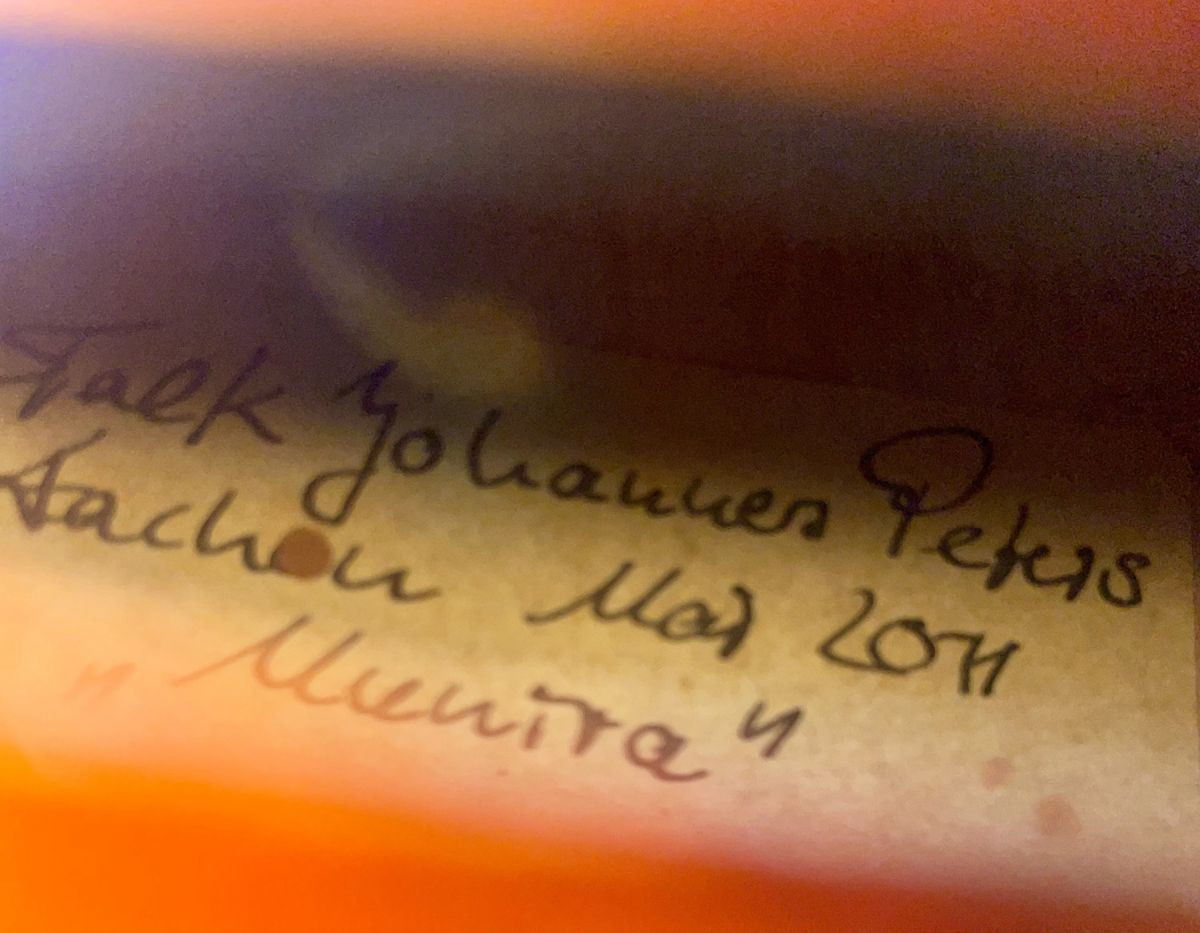 Falk Johannes Peters
Aachen Mai 2011
"Munira"